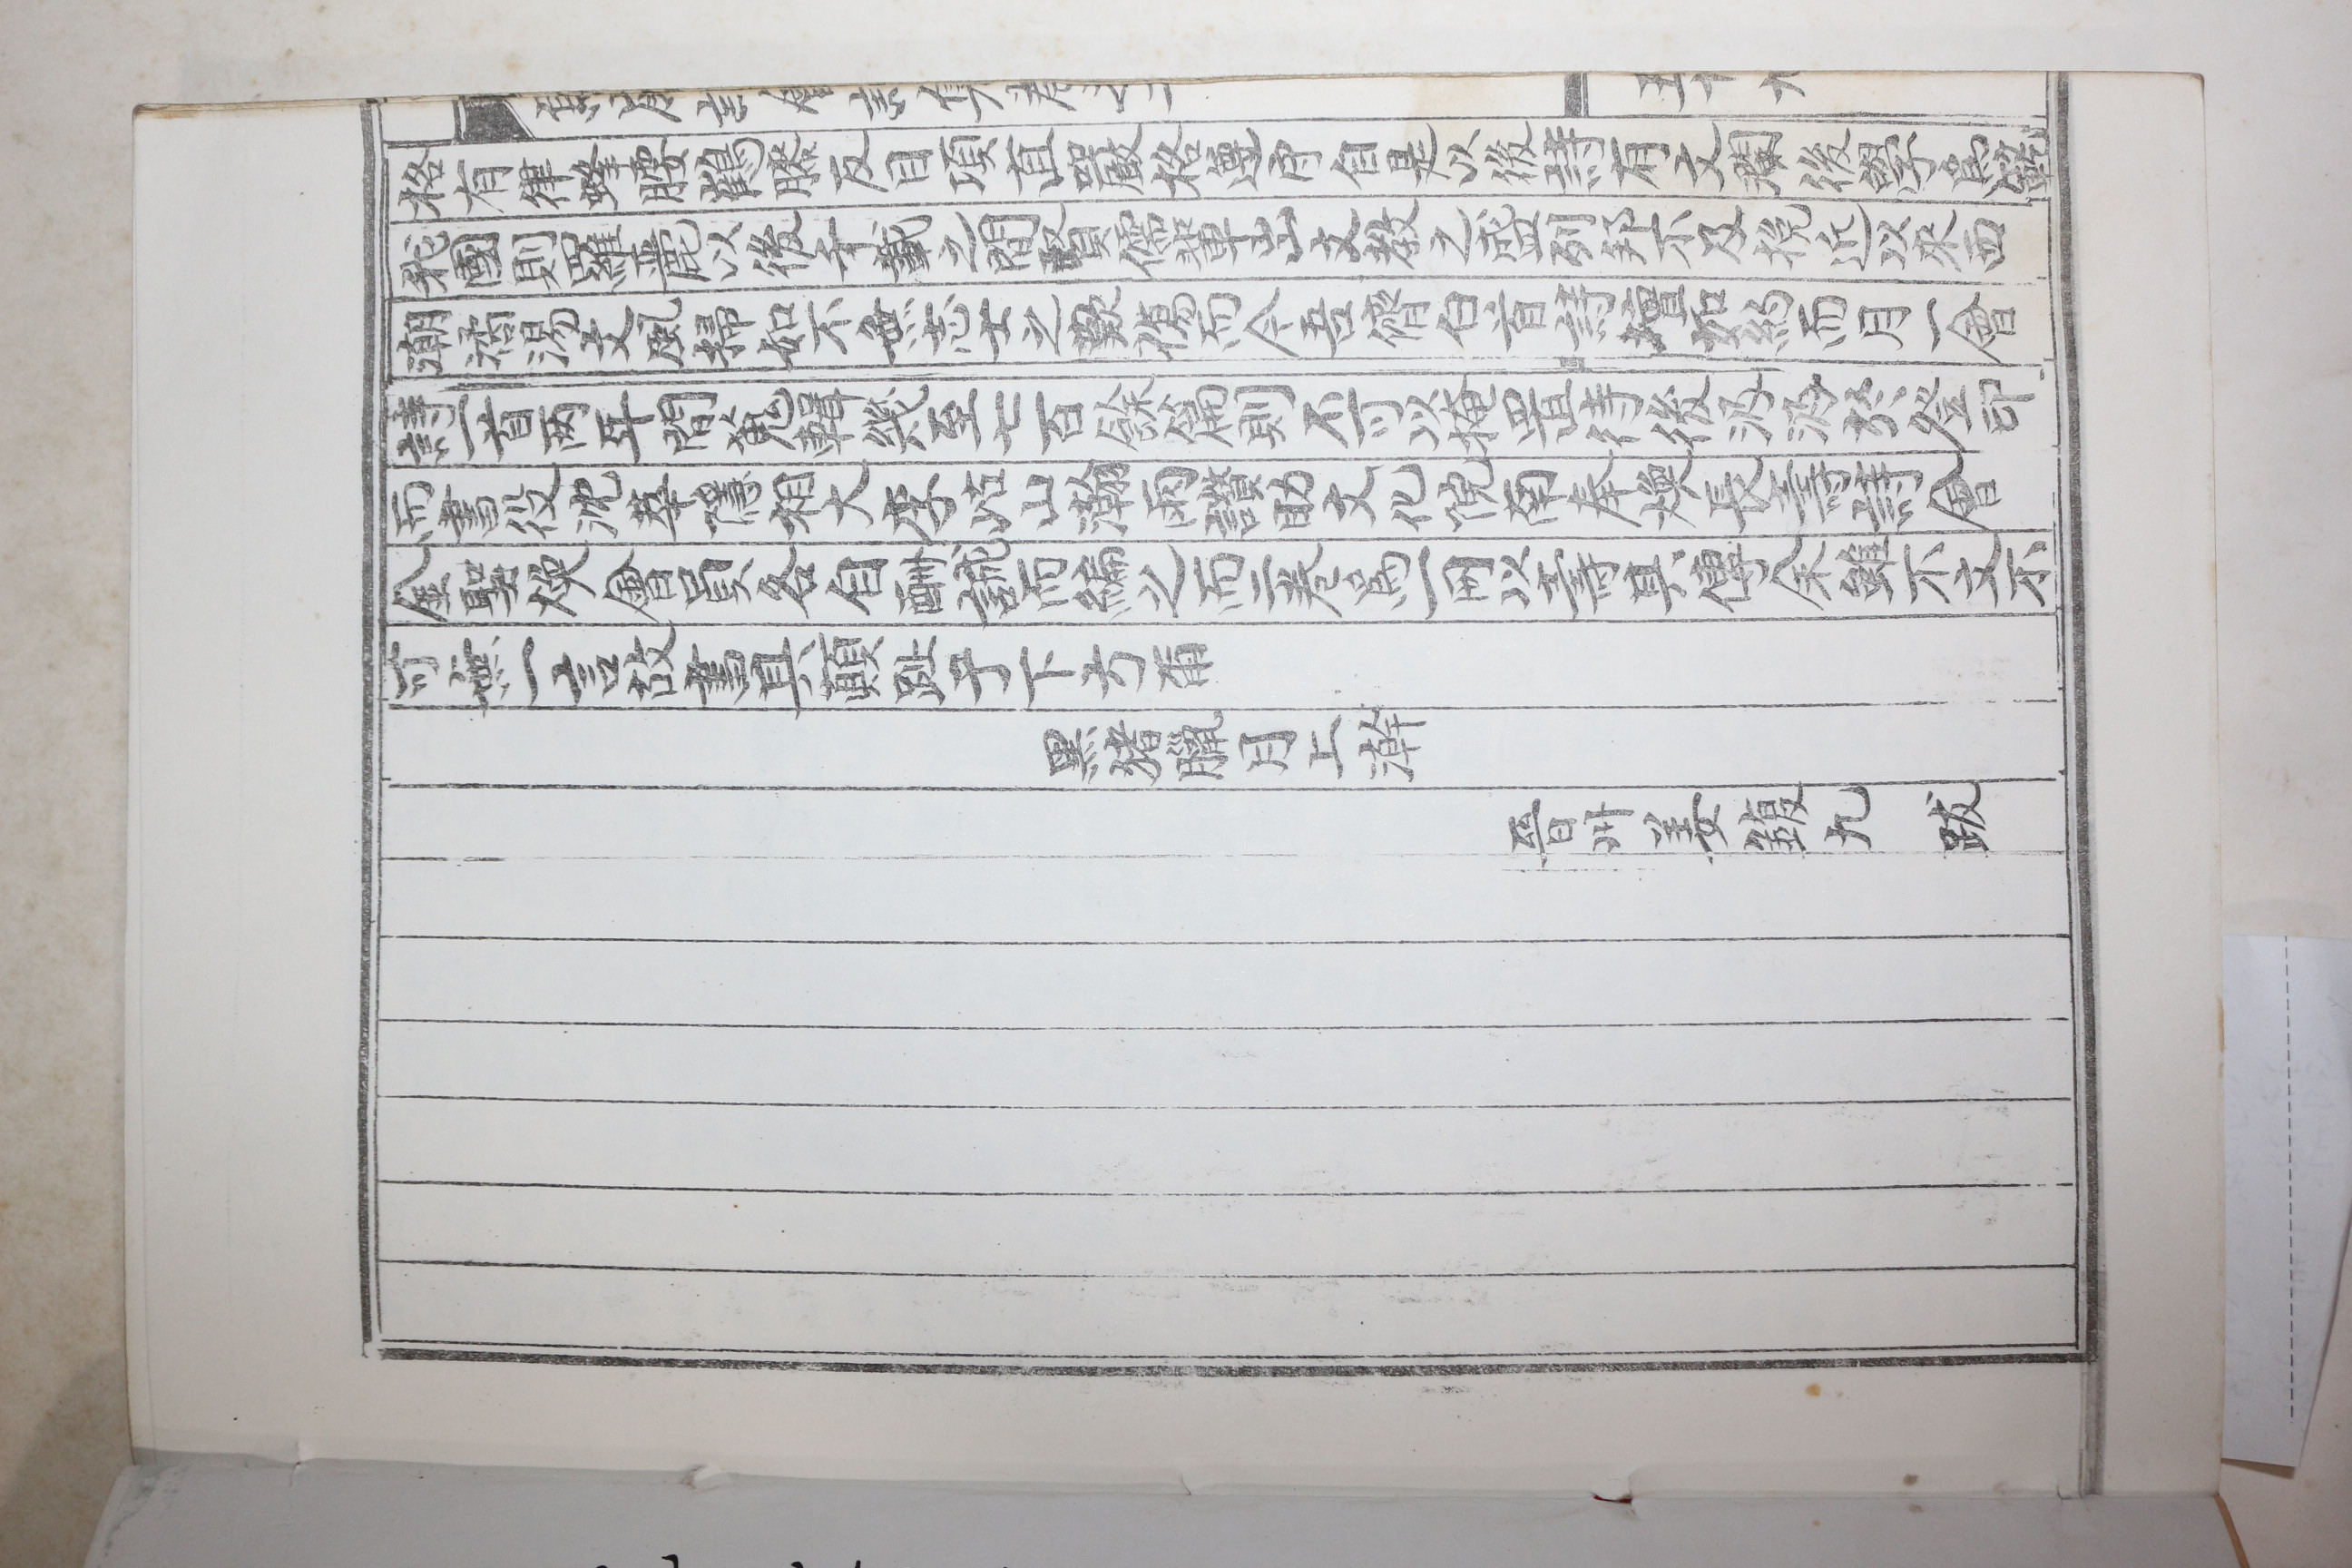 詩會詩集卷之二 五十九
格有律蜂腰鶴膝反目項直嚴格遵守自是以後詩有文瀾後學爲範
我國則羅麗以後千載之間賢儒輩出文教之盛列邦不及挽近以來西
潮潏湯文風掃如不無志士之歎傷而今吾儕白首詩壇如約而月一會
詩一首两年間蒐輯幾至七百餘篇則不可以掩置待後汲汲於登印
而書役沈華隱相大李岵山瀚雨讚助文化院南奉煥長壽詩會
金聖煥會員各自酬誠而編之而二卷爲一冊以壽其傳余雖不文不
可無一言故書其顛趾于下方甭
黑猪臘月上澣
晉州姜鍑九 跋